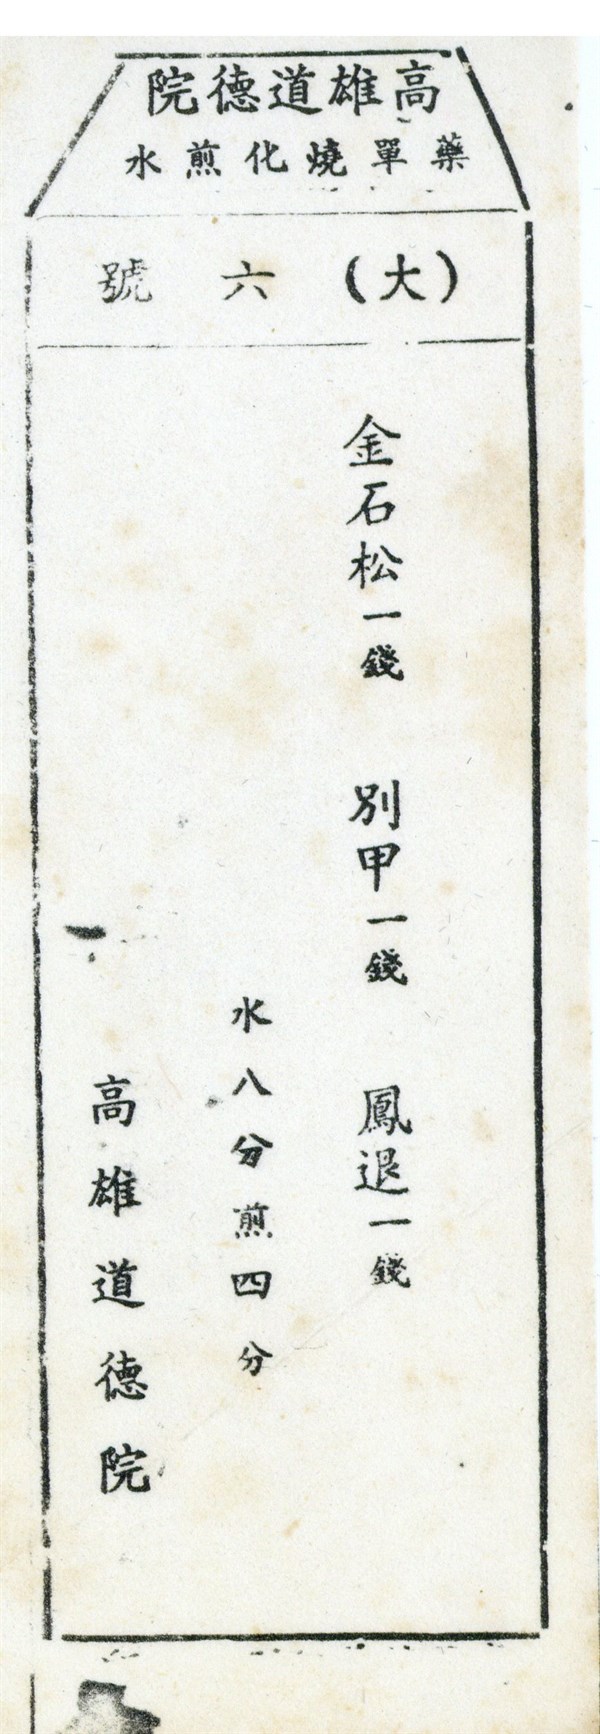 高雄道德院
藥單燒化煎水
(大)六號
金石松一錢 別甲一錢 鳳退一錢
水八分煎四分
高雄道德院